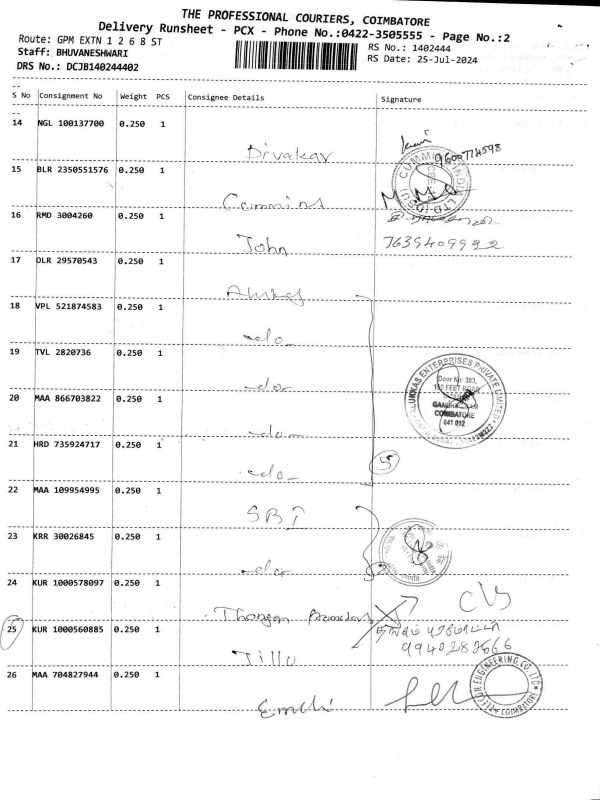 THE PROFESSIONAL COURIERS, COIMBATORE
Delivery Runsheet - PCX - Phone No.:0422-3505555 - Page No.:2
Route: GPM EXTN 1 2 6 8 ST
RS No.: 1402444
Staff: BHUVANESHWARI
RS Date: 25-Jul-2024
DRS No.: DCJB140244402
S No Consignment No Weight PCS Consignee Details Signature
14 NGL 100137700 0.250 1
Divakar
9600774598
15 BLR 2350551576 0.250 1
Cummins
16 RMD 3004260 0.250 1
John
7639409992
17 DLR 29570543 0.250 1
18 VPL 521874583 0.250 1
-do-
19 TVL 2820736 0.250 1
-do-
20 MAA 866703822 0.250 1
-do-
LUKKAS ENTERPRISES PRIVATE LIMITED
Door No: 383,
GANDHIPURAM
COIMBATORE
641 012
21 HRD 735924717 0.250 1
-do-
5
22 MAA 109954995 0.250 1
SBI
23 KRR 30026845 0.250 1
-do-
24 KUR 1000578097 0.250 1
C/S
25 KUR 1000560885 0.250 1
Jillu
9940282666
26 MAA 704827944 0.250 1
ENGINEERING CO. LTD
COIMBATORE